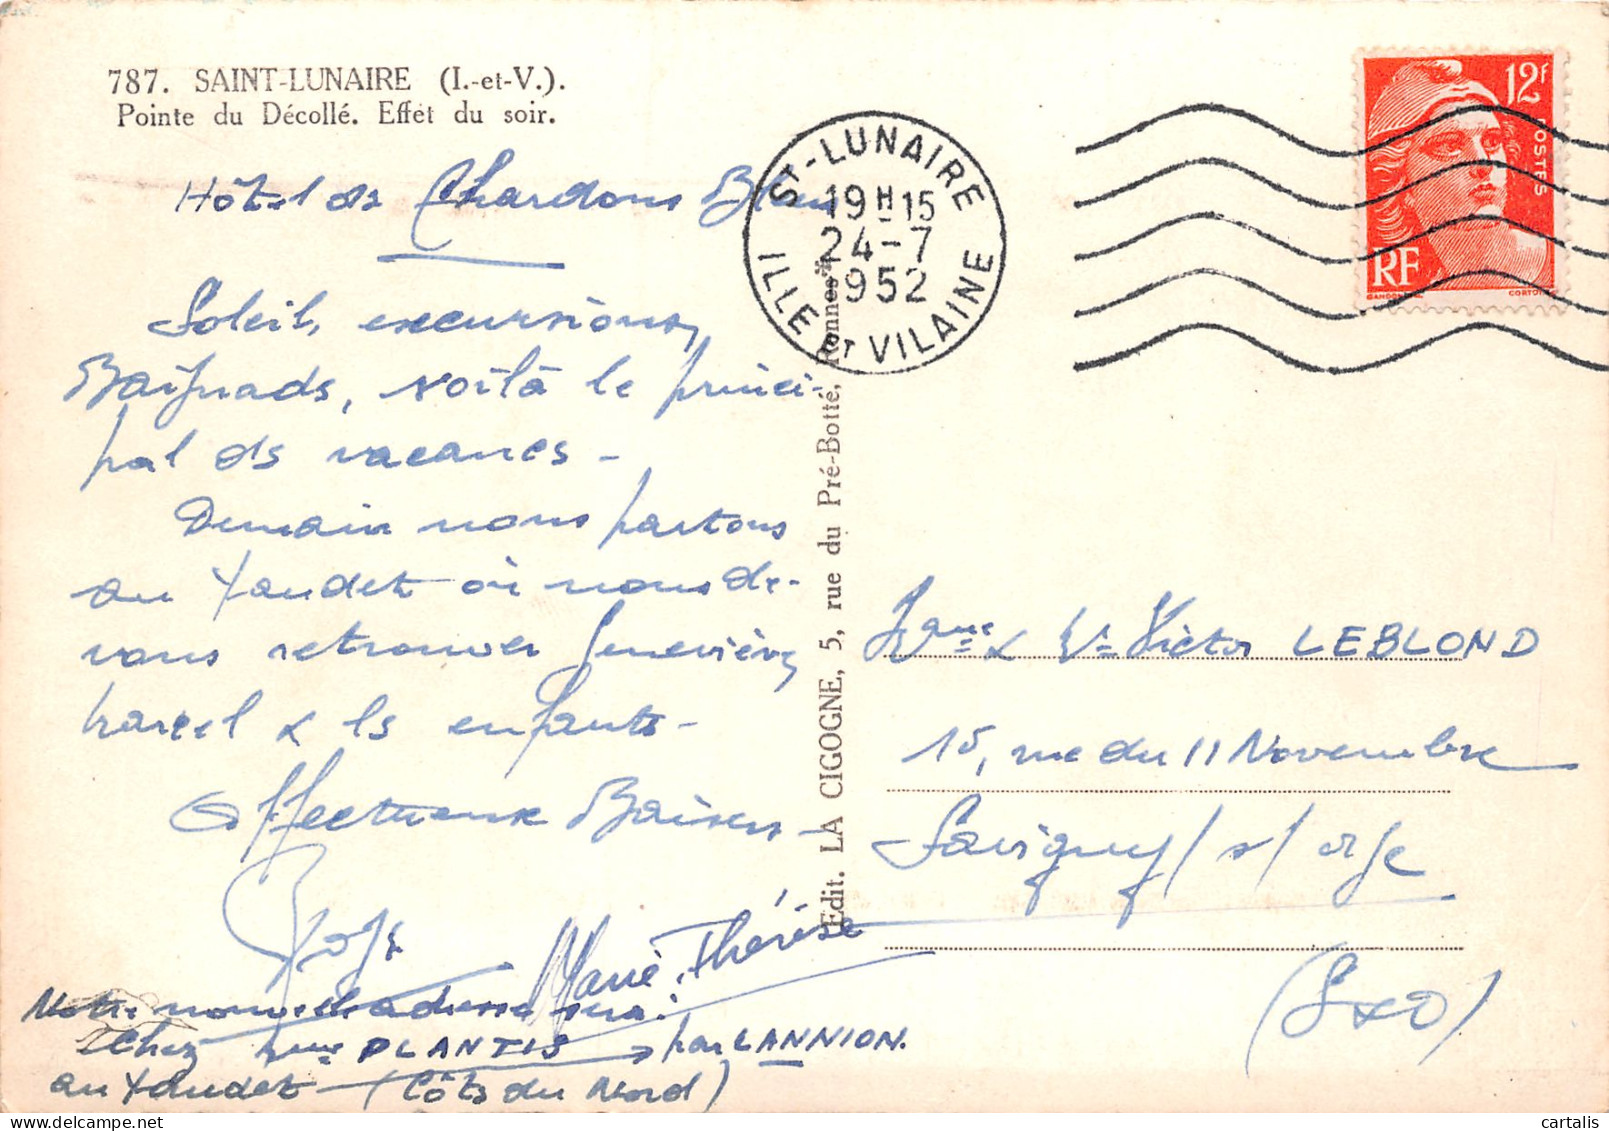 787. SAINT-LUNAIRE (I.-et-V.).
Pointe du Décollé. Effet du soir.
Hôtel des Chardons Bleus
Soleil, excursions,
Baignades, voilà le princi-
pal des vacances -
Demain nous partons
au Yaudet où nous de-
vons retrouver Geneviève,
Marcel & les enfants -
Affectueux Baisers -
Marie-Thérèse
Notre nouvelle adresse sera:
Chez Mme PLANTIS → par LANNION.
au Yaudet - (Côtes du Nord)
Edit. LA CIGOGNE, 5, rue du Pré-Botté, Rennes
ST-LUNAIRE
19H15
24-7
1952
ILLE ET VILAINE
12f
POSTES
RF
GANDON
CORTOT
& Victor LEBLOND
15, rue du 11 Novembre
Savigny / s / orge
(S&O)
cartalis